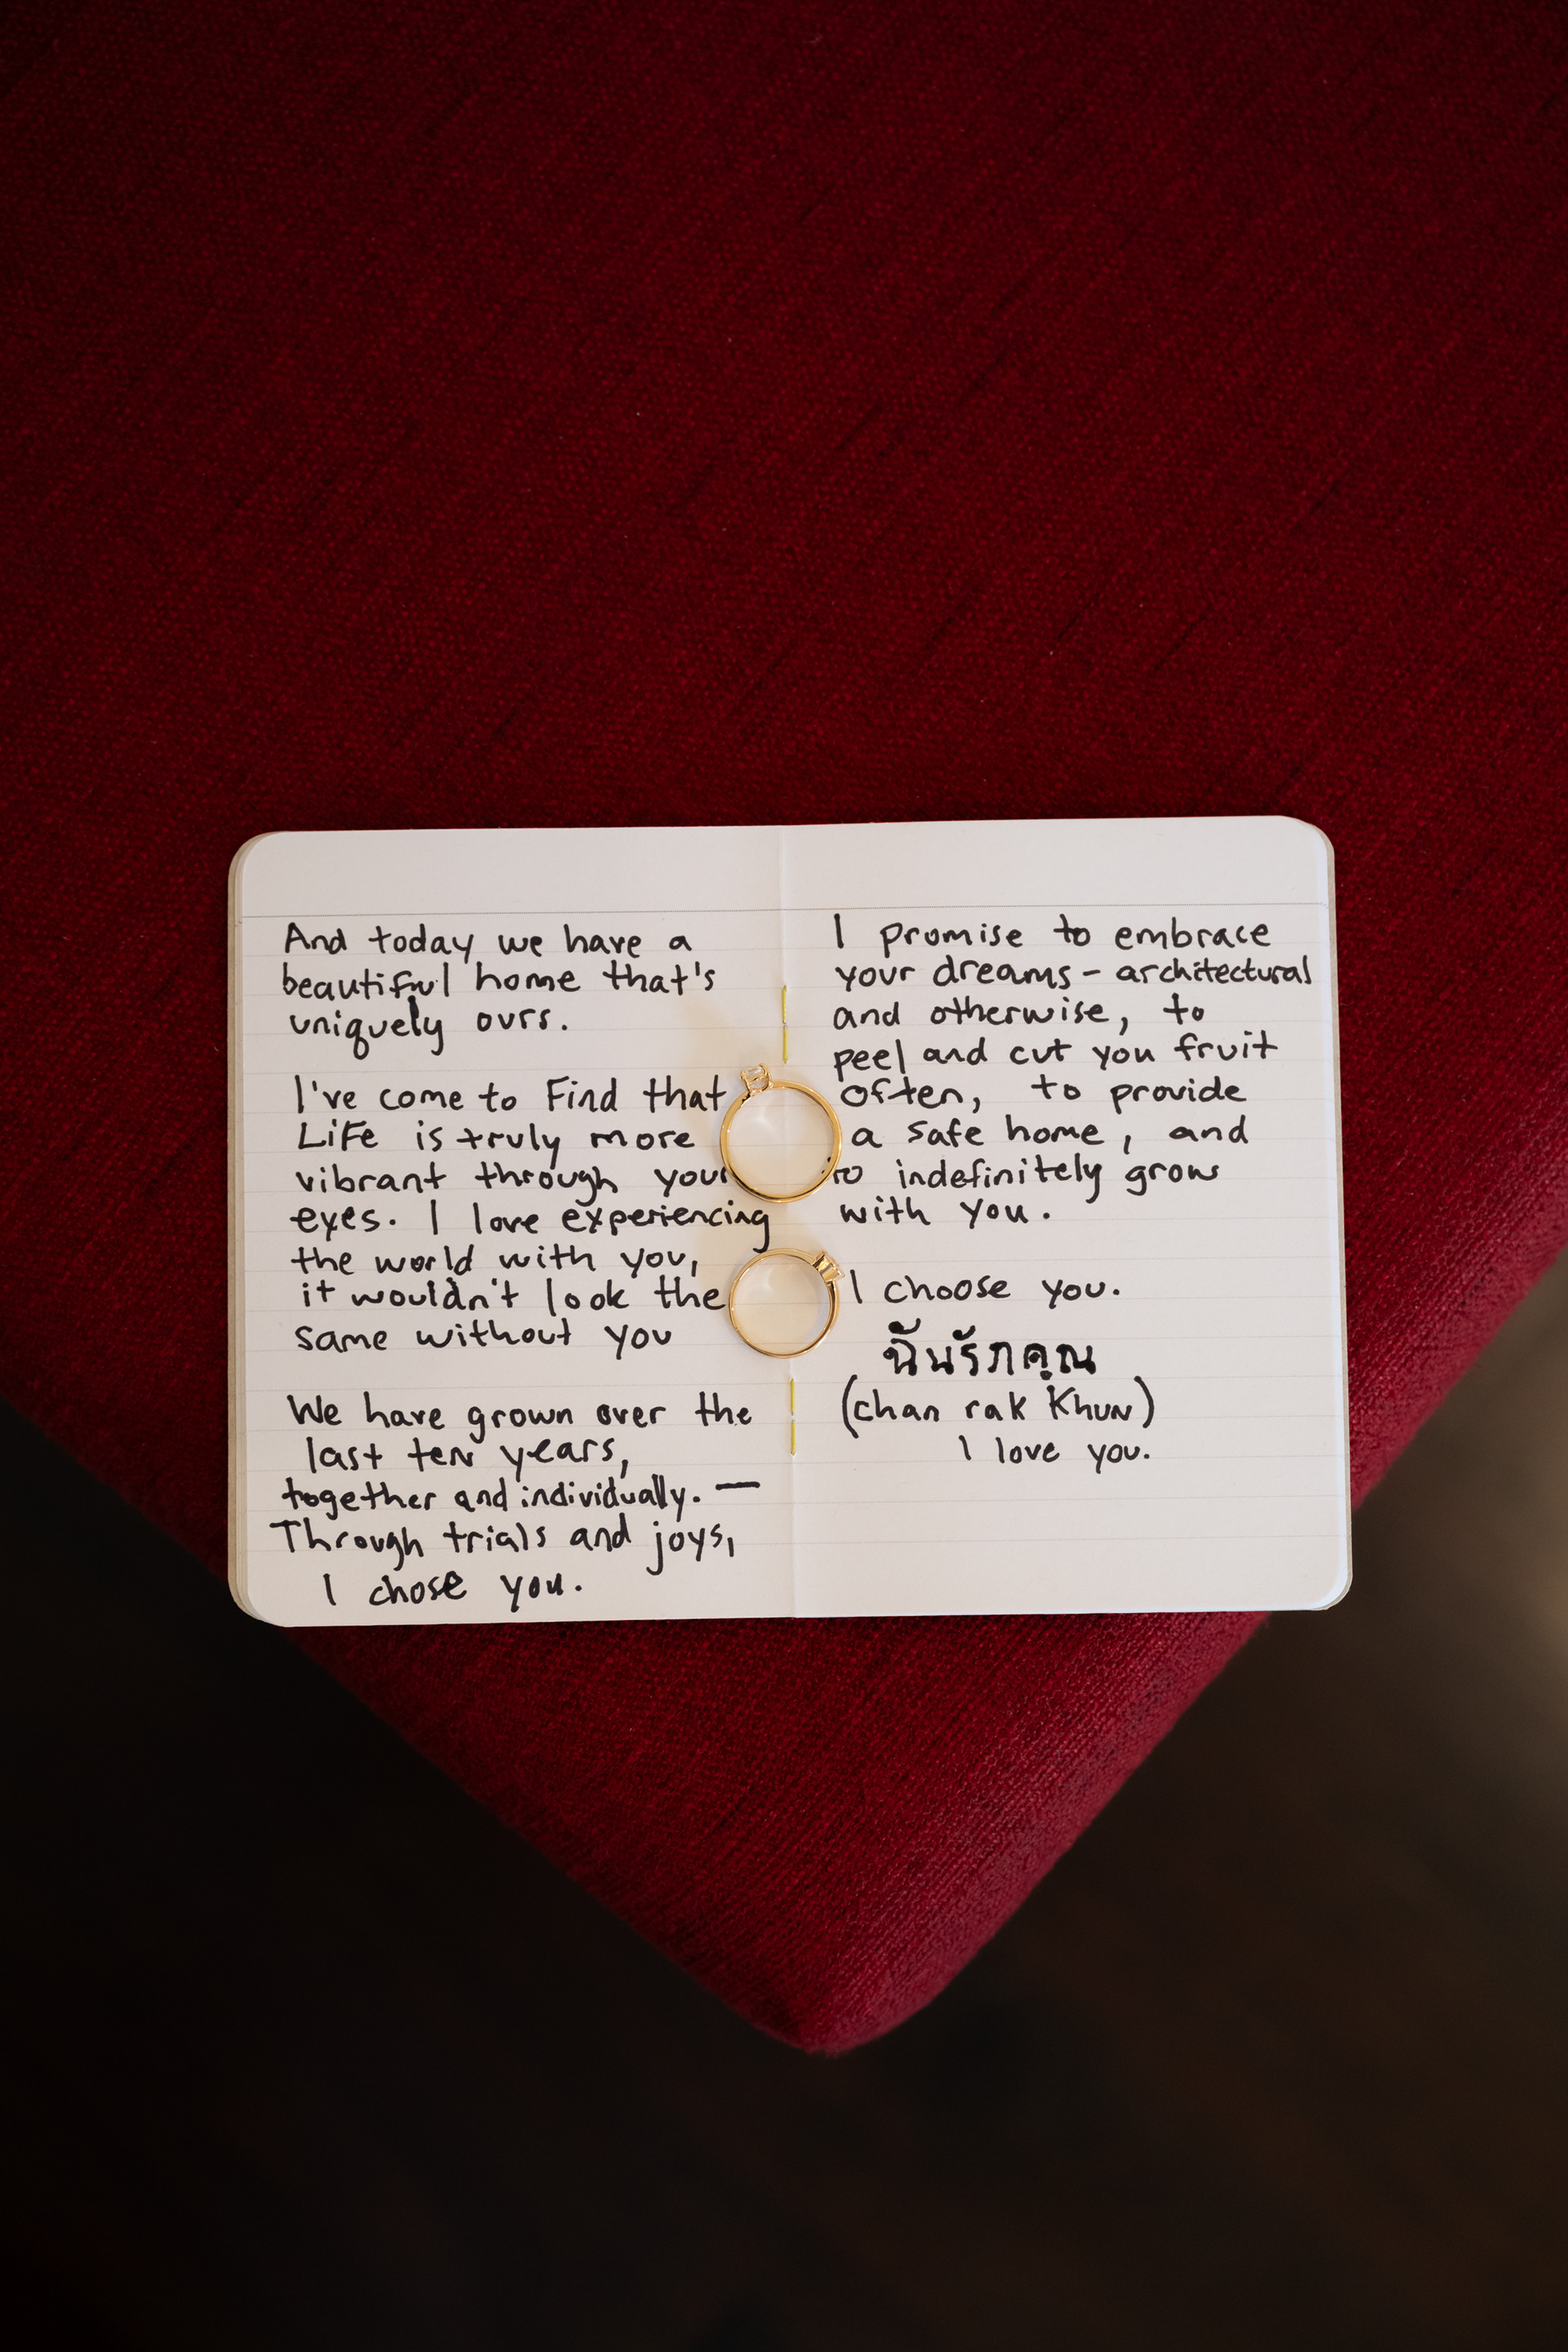 And today we have a
beautiful home that's
uniquely ours.
I've come to Find that
LiFe is truly more
vibrant through your
eyes. I love experiencing
the world with you,
it wouldn't look the
same without you
We have grown over the
last ten years,
together and individually. —
Through trials and joys,
I chose you.
I promise to embrace
your dreams - architectural
and otherwise, to
peel and cut you fruit
often, to provide
a safe home, and
to indefinitely grow
with you.
I choose you.
ฉันรักคุณ
(chan rak Khun)
I love you.